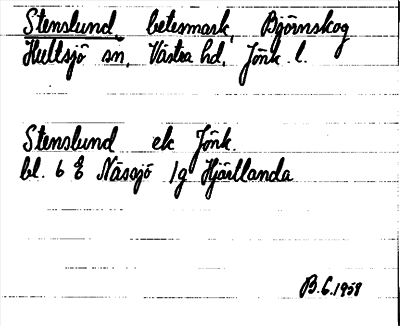 Stenslund, betesmark, Björnskog
Hultsjö sn, Västra hd, Jönk. l.
Stenslund ek Jönk.
bl. 6 E Nässjö 1g Hjärtlanda
B.G.1958